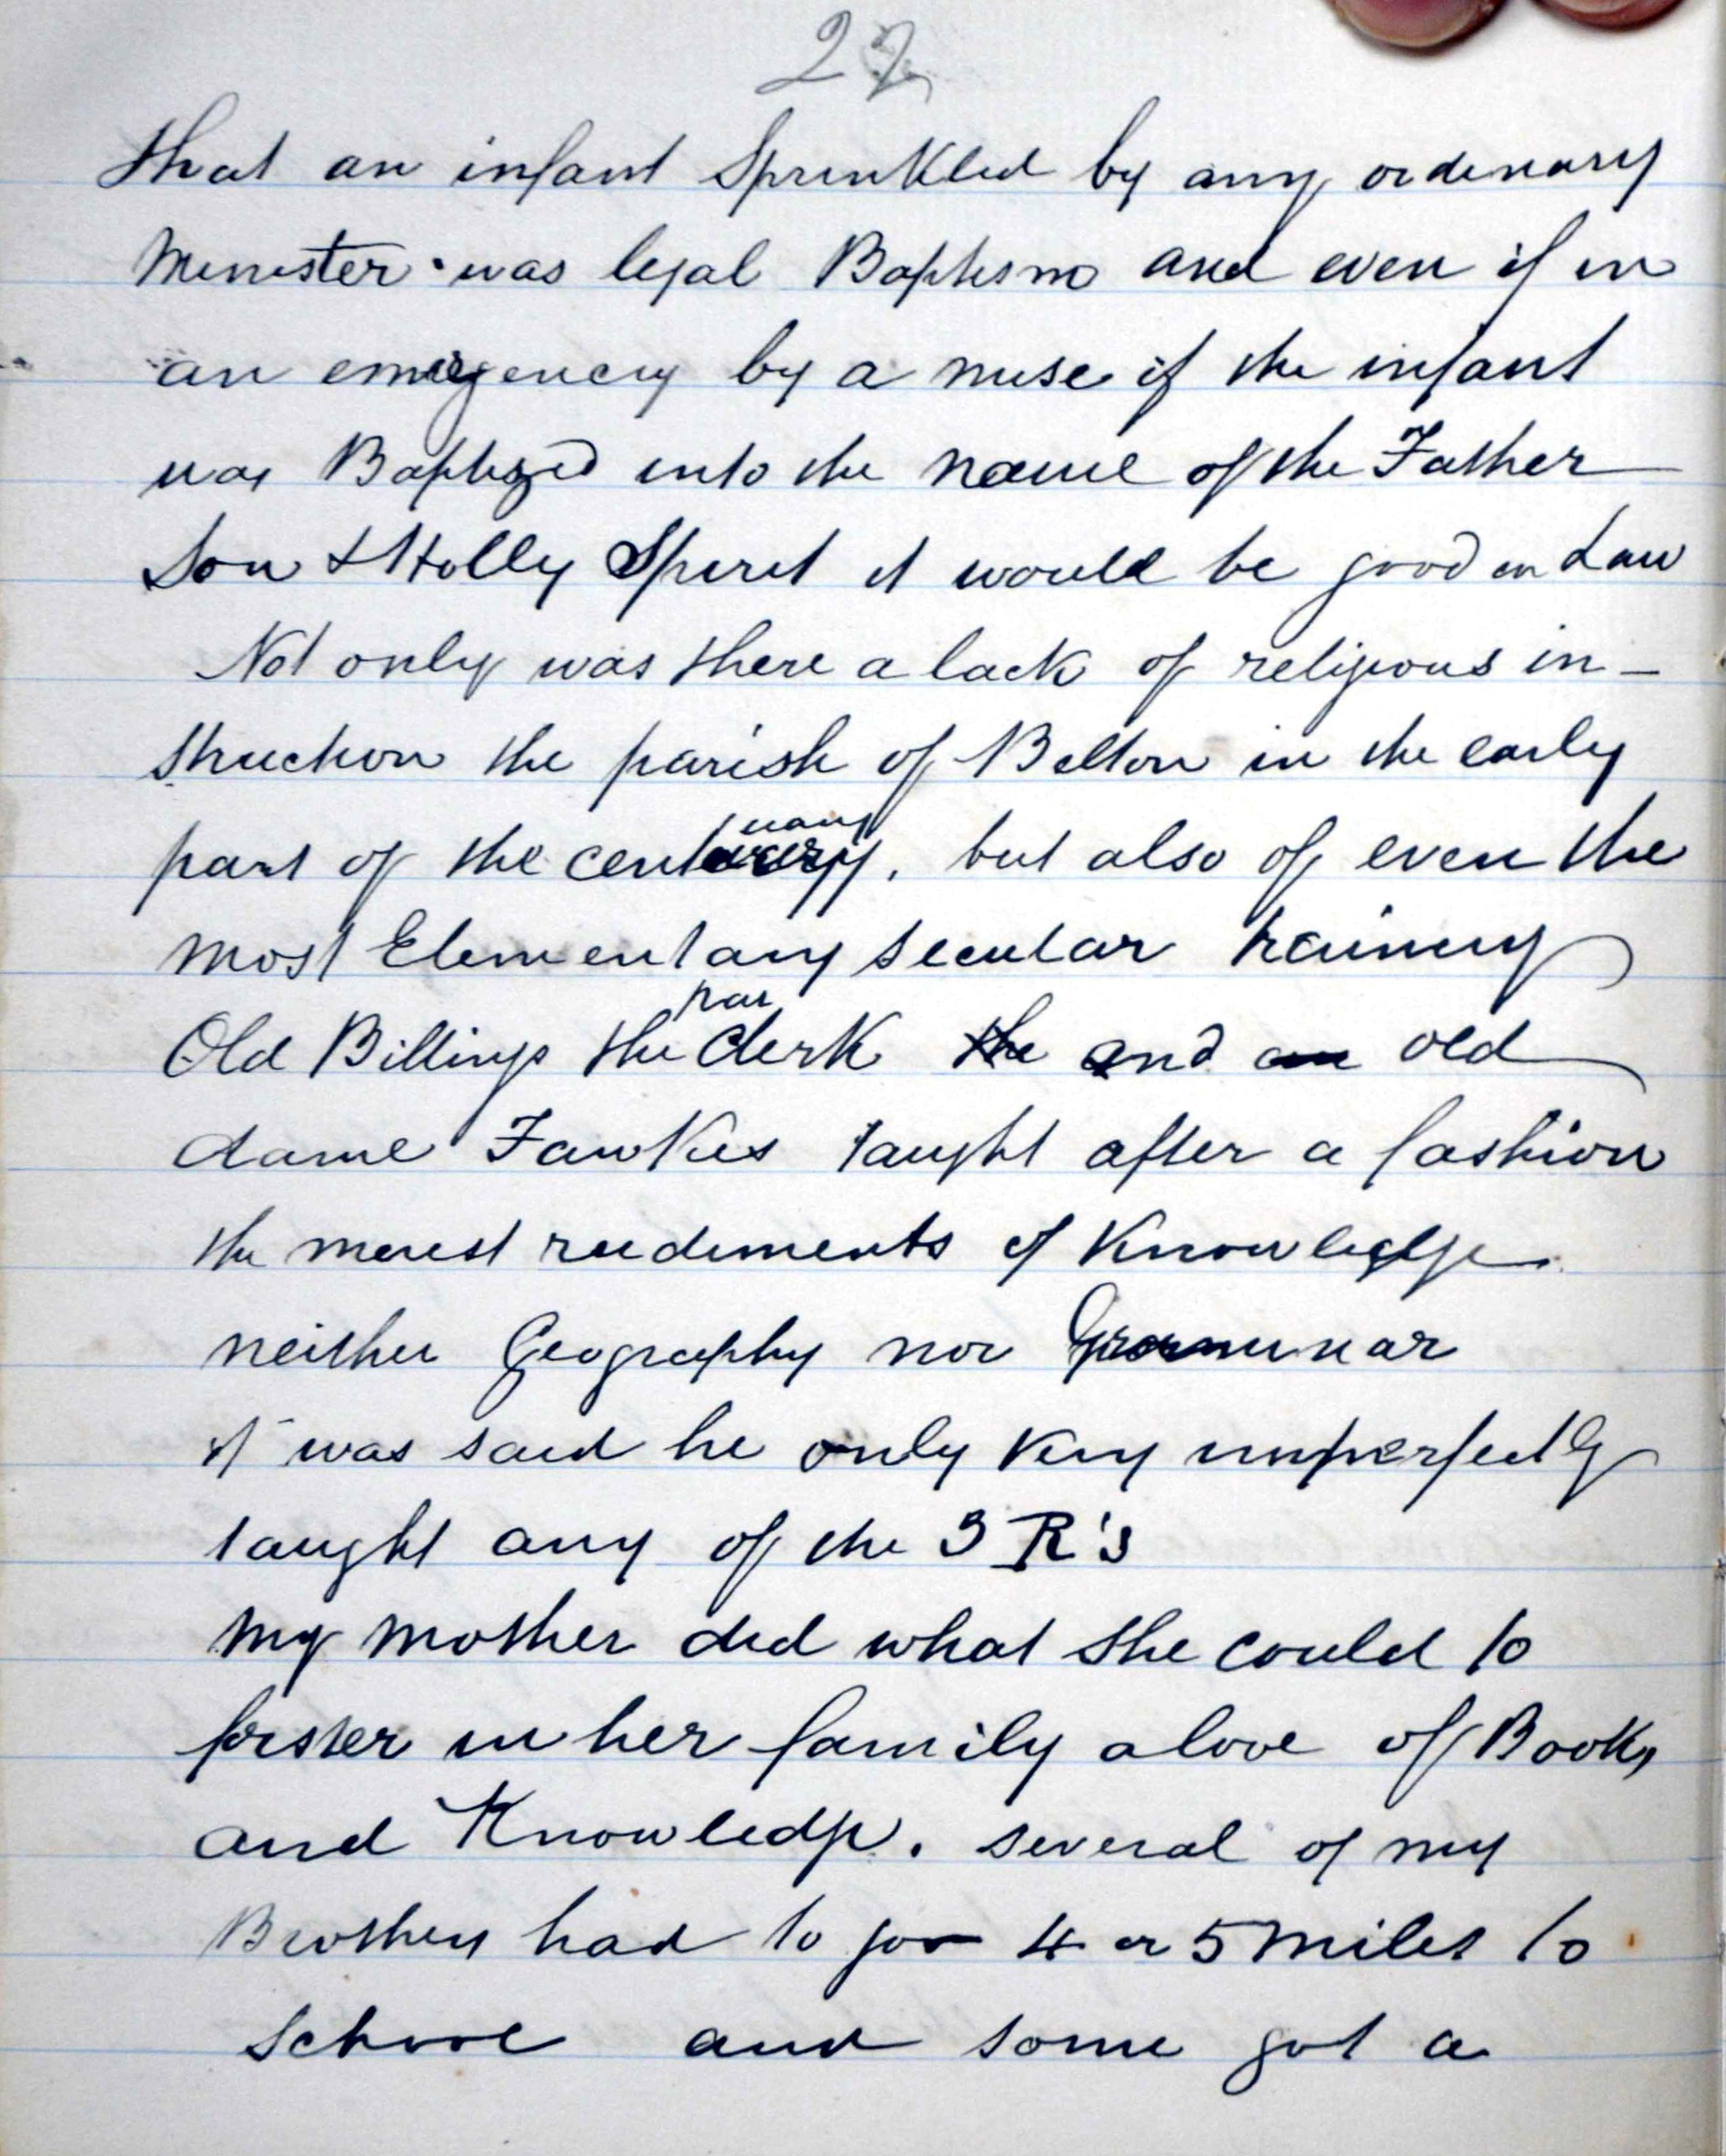 22
that an infant Sprinkled by any ordinary
Minister was legal Baptism and even if in
an emergency by a nurse if the infant
was Baptized into the name of the Father
Son & Holly Spirit it would be good in Law
Not only was there a lack of religious in-
struction the parish of Belton in the early
part of the century, but also of even the
most Elementary secular training
Old Billings the Clerk the and an old
dame Fawkes taught after a fashion
the merest rudiments of Knowledge.
neither Geography nor Grammar
it was said he only very imperfectly
taught any of the 3 R's
my mother did what she could to
foster in her family a love of Books
and Knowledge. several of my
Brothers had to go 4 or 5 miles to
School and some got a